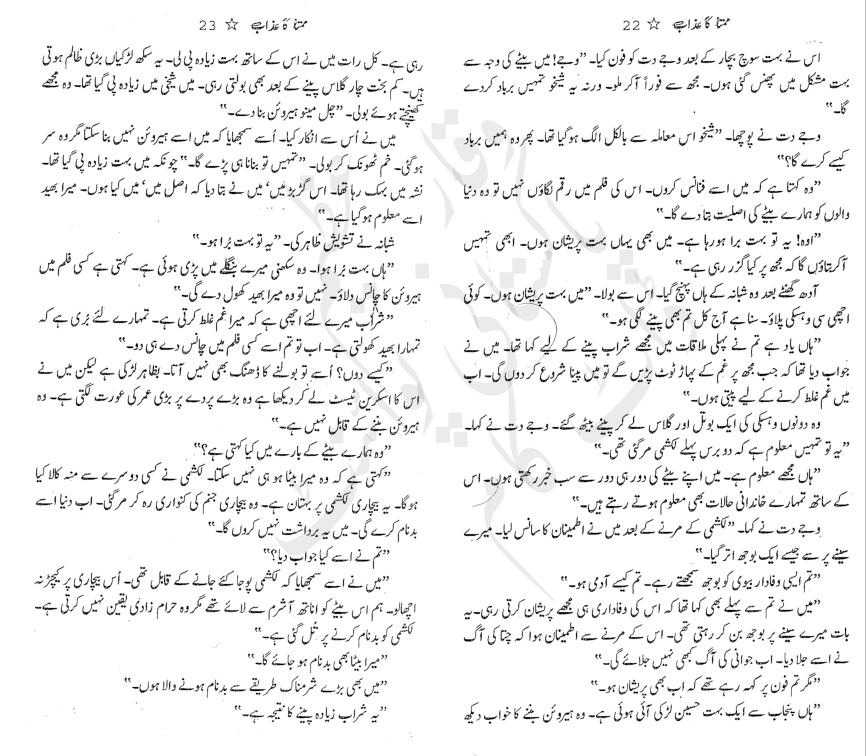 ممتا کا عذاب ☆ 22
اس نے بہت سوچ بچار کے بعد وجے دت کو فون کیا۔ "وجے! میں بیٹے کی وجہ سے
بہت مشکل میں پھنس گئی ہوں۔ مجھ سے فوراً آکر ملو۔ ورنہ یہ شیخو تمہیں برباد کردے
گا۔"
وجے دت نے پوچھا۔ "شیخو اس معاملہ سے بالکل الگ ہوگیا تھا۔ پھر وہ ہمیں برباد
کیسے کرے گا؟"
"وہ کہتا ہے کہ میں اسے فنانس کروں۔ اس کی فلم میں رقم لگاؤں نہیں تو وہ دنیا
والوں کو ہمارے بیٹے کی اصلیت بتا دے گا۔"
"اوہ! یہ تو بہت برا ہورہا ہے۔ میں بھی یہاں بہت پریشان ہوں۔ ابھی تمہیں
آکر بتاؤں گا کہ مجھ پر کیا گزر رہی ہے۔"
آدھ گھنٹے بعد وہ شبانہ کے ہاں پہنچ گیا۔ اس سے بولا۔ "میں بہت پریشان ہوں۔ کوئی
اچھی سی وہسکی پلاؤ۔ سنا ہے آج کل تم بھی پینے لگی ہو۔"
"ہاں یاد ہے تم نے پہلی ملاقات میں مجھے شراب پینے کے لیے کہا تھا۔ میں نے
جواب دیا تھا کہ جب مجھ پر غم کے پہاڑ ٹوٹ پڑیں گے تو میں پینا شروع کر دوں گی۔ اب
میں غم غلط کرنے کے لیے پیتی ہوں۔"
وہ دونوں وہسکی کی ایک بوتل اور گلاس لے کر پینے بیٹھ گئے۔ وجے دت نے کہا۔
"یہ تو تمہیں معلوم ہے کہ دو برس پہلے لکشمی مرگئی تھی۔"
"ہاں مجھے معلوم ہے۔ میں اپنے بیٹے کی دور ہی دور سے سب خبر رکھتی ہوں۔ اس
کے ساتھ تمہارے خاندانی حالات بھی معلوم ہوتے رہتے ہیں۔"
وجے دت نے کہا۔ "لکشمی کے مرنے کے بعد میں نے اطمینان کا سانس لیا۔ میرے
سینے پر سے جیسے ایک بوجھ اتر گیا۔"
"تم ایسی وفادار بیوی کو بوجھ سمجھتے رہے۔ تم کیسے آدمی ہو۔"
"میں نے تم سے پہلے بھی کہا تھا کہ اس کی وفاداری ہی مجھے پریشان کرتی رہی۔ یہ
بات میرے سینے پر بوجھ بن کر رہتی تھی۔ اس کے مرنے سے اطمینان ہوا کہ چتا کی آگ
نے اسے جلا دیا۔ اب جوانی کی آگ کبھی نہیں جلائے گی۔"
"مگر تم فون پر کہہ رہے تھے کہ اب بھی پریشان ہو۔"
"ہاں پنجاب سے ایک بہت حسین لڑکی آئی ہوئی ہے۔ وہ ہیروئن بننے کا خواب دیکھ
ممتا کا عذاب ☆ 23
رہی ہے۔ کل رات میں نے اس کے ساتھ بہت زیادہ پی لی۔ یہ سکھ لڑکیاں بڑی ظالم ہوتی
ہیں۔ کم بخت چار گلاس پینے کے بعد بھی بولتی رہی۔ میں شیخی میں زیادہ پی گیا تھا۔ وہ مجھے
کھینچتے ہوئے بولی۔ "چل مینو ہیروئن بنا دے۔"
میں نے اُس سے انکار کیا۔ اُسے سمجھایا کہ میں اسے ہیروئن نہیں بنا سکتا مگر وہ سر
ہوگئی۔ خم ٹھونک کر بولی۔ "تمہیں تو بنانا ہی پڑے گا۔" چونکہ میں بہت زیادہ پی گیا تھا۔
نشہ میں بہک رہا تھا۔ اس گڑبڑ میں' میں نے بتا دیا کہ اصل میں' میں کیا ہوں۔ میرا بھید
اسے معلوم ہوگیا ہے۔"
شبانہ نے تشویش ظاہر کی۔ "یہ تو بہت بُرا ہو۔"
"ہاں بہت بُرا ہوا۔ وہ سکھنی میرے بنگلے میں پڑی ہوئی ہے۔ کہتی ہے کسی فلم میں
ہیروئن کا چانس دلاؤ۔ نہیں تو وہ میرا بھید کھول دے گی۔"
"شراب میرے لئے اچھی ہے کہ میرا غم غلط کرتی ہے۔ تمہارے لئے بُری ہے کہ
تمہارا بھید کھولتی ہے۔ اب تو تم اسے کسی فلم میں چانس دے ہی دو۔"
"کیسے دوں؟ اُسے تو بولنے کا ڈھنگ بھی نہیں آتا۔ بظاہر لڑکی ہے لیکن میں نے
اس کا اسکرین ٹیسٹ لے کر دیکھا ہے وہ بڑے پردے پر بڑی عمر کی عورت لگتی ہے۔ وہ
ہیروئن بننے کے قابل نہیں ہے۔"
"وہ ہمارے بیٹے کے بارے میں کیا کہتی ہے؟"
"کہتی ہے کہ وہ میرا بیٹا ہو ہی نہیں سکتا۔ لکشمی نے کسی دوسرے سے منہ کالا کیا
ہوگا۔ یہ بیچاری لکشمی پر بہتان ہے۔ وہ بیچاری جنم کی کنواری رہ کر مرگئی۔ اب دنیا اسے
بدنام کرے گی۔ میں یہ برداشت نہیں کروں گا۔"
"تم نے اسے کیا جواب دیا؟"
"میں نے اسے سمجھایا کہ لکشمی پوجا کئے جانے کے قابل تھی۔ اُس بیچاری پر کیچڑ نہ
اچھالو۔ ہم اس بیٹے کو اناتھ آشرم سے لائے تھے مگر وہ حرام زادی یقین نہیں کرتی ہے۔
لکشمی کو بدنام کرنے پر تُل گئی ہے۔"
"میرا بیٹا بھی بدنام ہو جائے گا۔"
"میں بھی بڑے شرمناک طریقے سے بدنام ہونے والا ہوں۔"
"یہ شراب زیادہ پینے کا نتیجہ ہے۔"